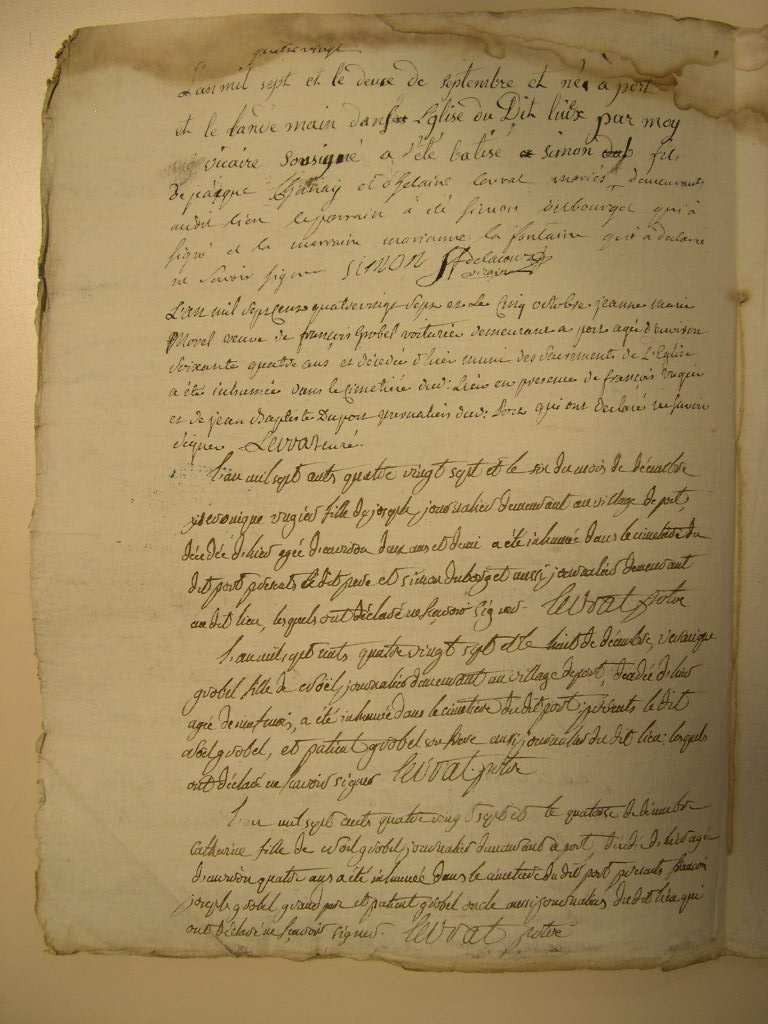 quatre vingt
L'an mil sept et le deuxe de septembre et né à port
et le landemain dans L'glise du Dit lieux par moy
vicaire sousigné a été batisé simon fils
De et Ghelaine maries demeurants
audit lieu le parrain à été simon qui à
signé et la marraine marianne la fontaine qui à déclaré
ne savoir signer SIMON
vicaire
L'an mil sept cent quatre vingt sept et Le Cinq octobre jeanne marie
Novel veuve de françois Grobel voiturié demeurant a port agé d'environ
soixante quatre ans et décédée d'hier munie des sacrements de L'Eglise
a été inhumée dans le cimetière dud: Lieu en presence de françois
et de jean Baptiste Dupont journaliers dud: port qui ont déclaré ne savoir
signer Levrat curé.
L'an mil sept cents quatre vingt sept et le six du mois de décembre
veronique vugier fille de joseph journalier demeurant au village de port,
décédée d'hier agée d'environ deux ans et demi a été inhumée dans le cimetière du
dit port présents le dit pere et simon dubourget aussi journalier demeurant
au dit lieu, lesquels ont déclaré ne sçavoir signer. levrat prètre
L'an mil sept cents quatre vingt sept et le huit de décembre, veronique
grobel fille de Noël journalier demeurant au village de port, décédée d'hier
agée de neuf mois, a été inhumée dans le cimetière du dit port; présents le dit
Noel grobel, et patient grobel son frere aussi journalier du dit lieu; lesquels
ont déclaré ne sçavoir signer levrat prètre
L'an mil sept cents quatre vingt sept et le quatorse de décembre
Catherine fille de Noël grobel journalier demeurant à port, décédée d'hier agée
d'environ quatre ans a été inhumée dans le cimetière du dit port présents françois
joseph grobel grand pere et patient grobel oncle aussi journaliers du dit lieu qui
ont déclaré ne sçavoir signer. levrat prètre